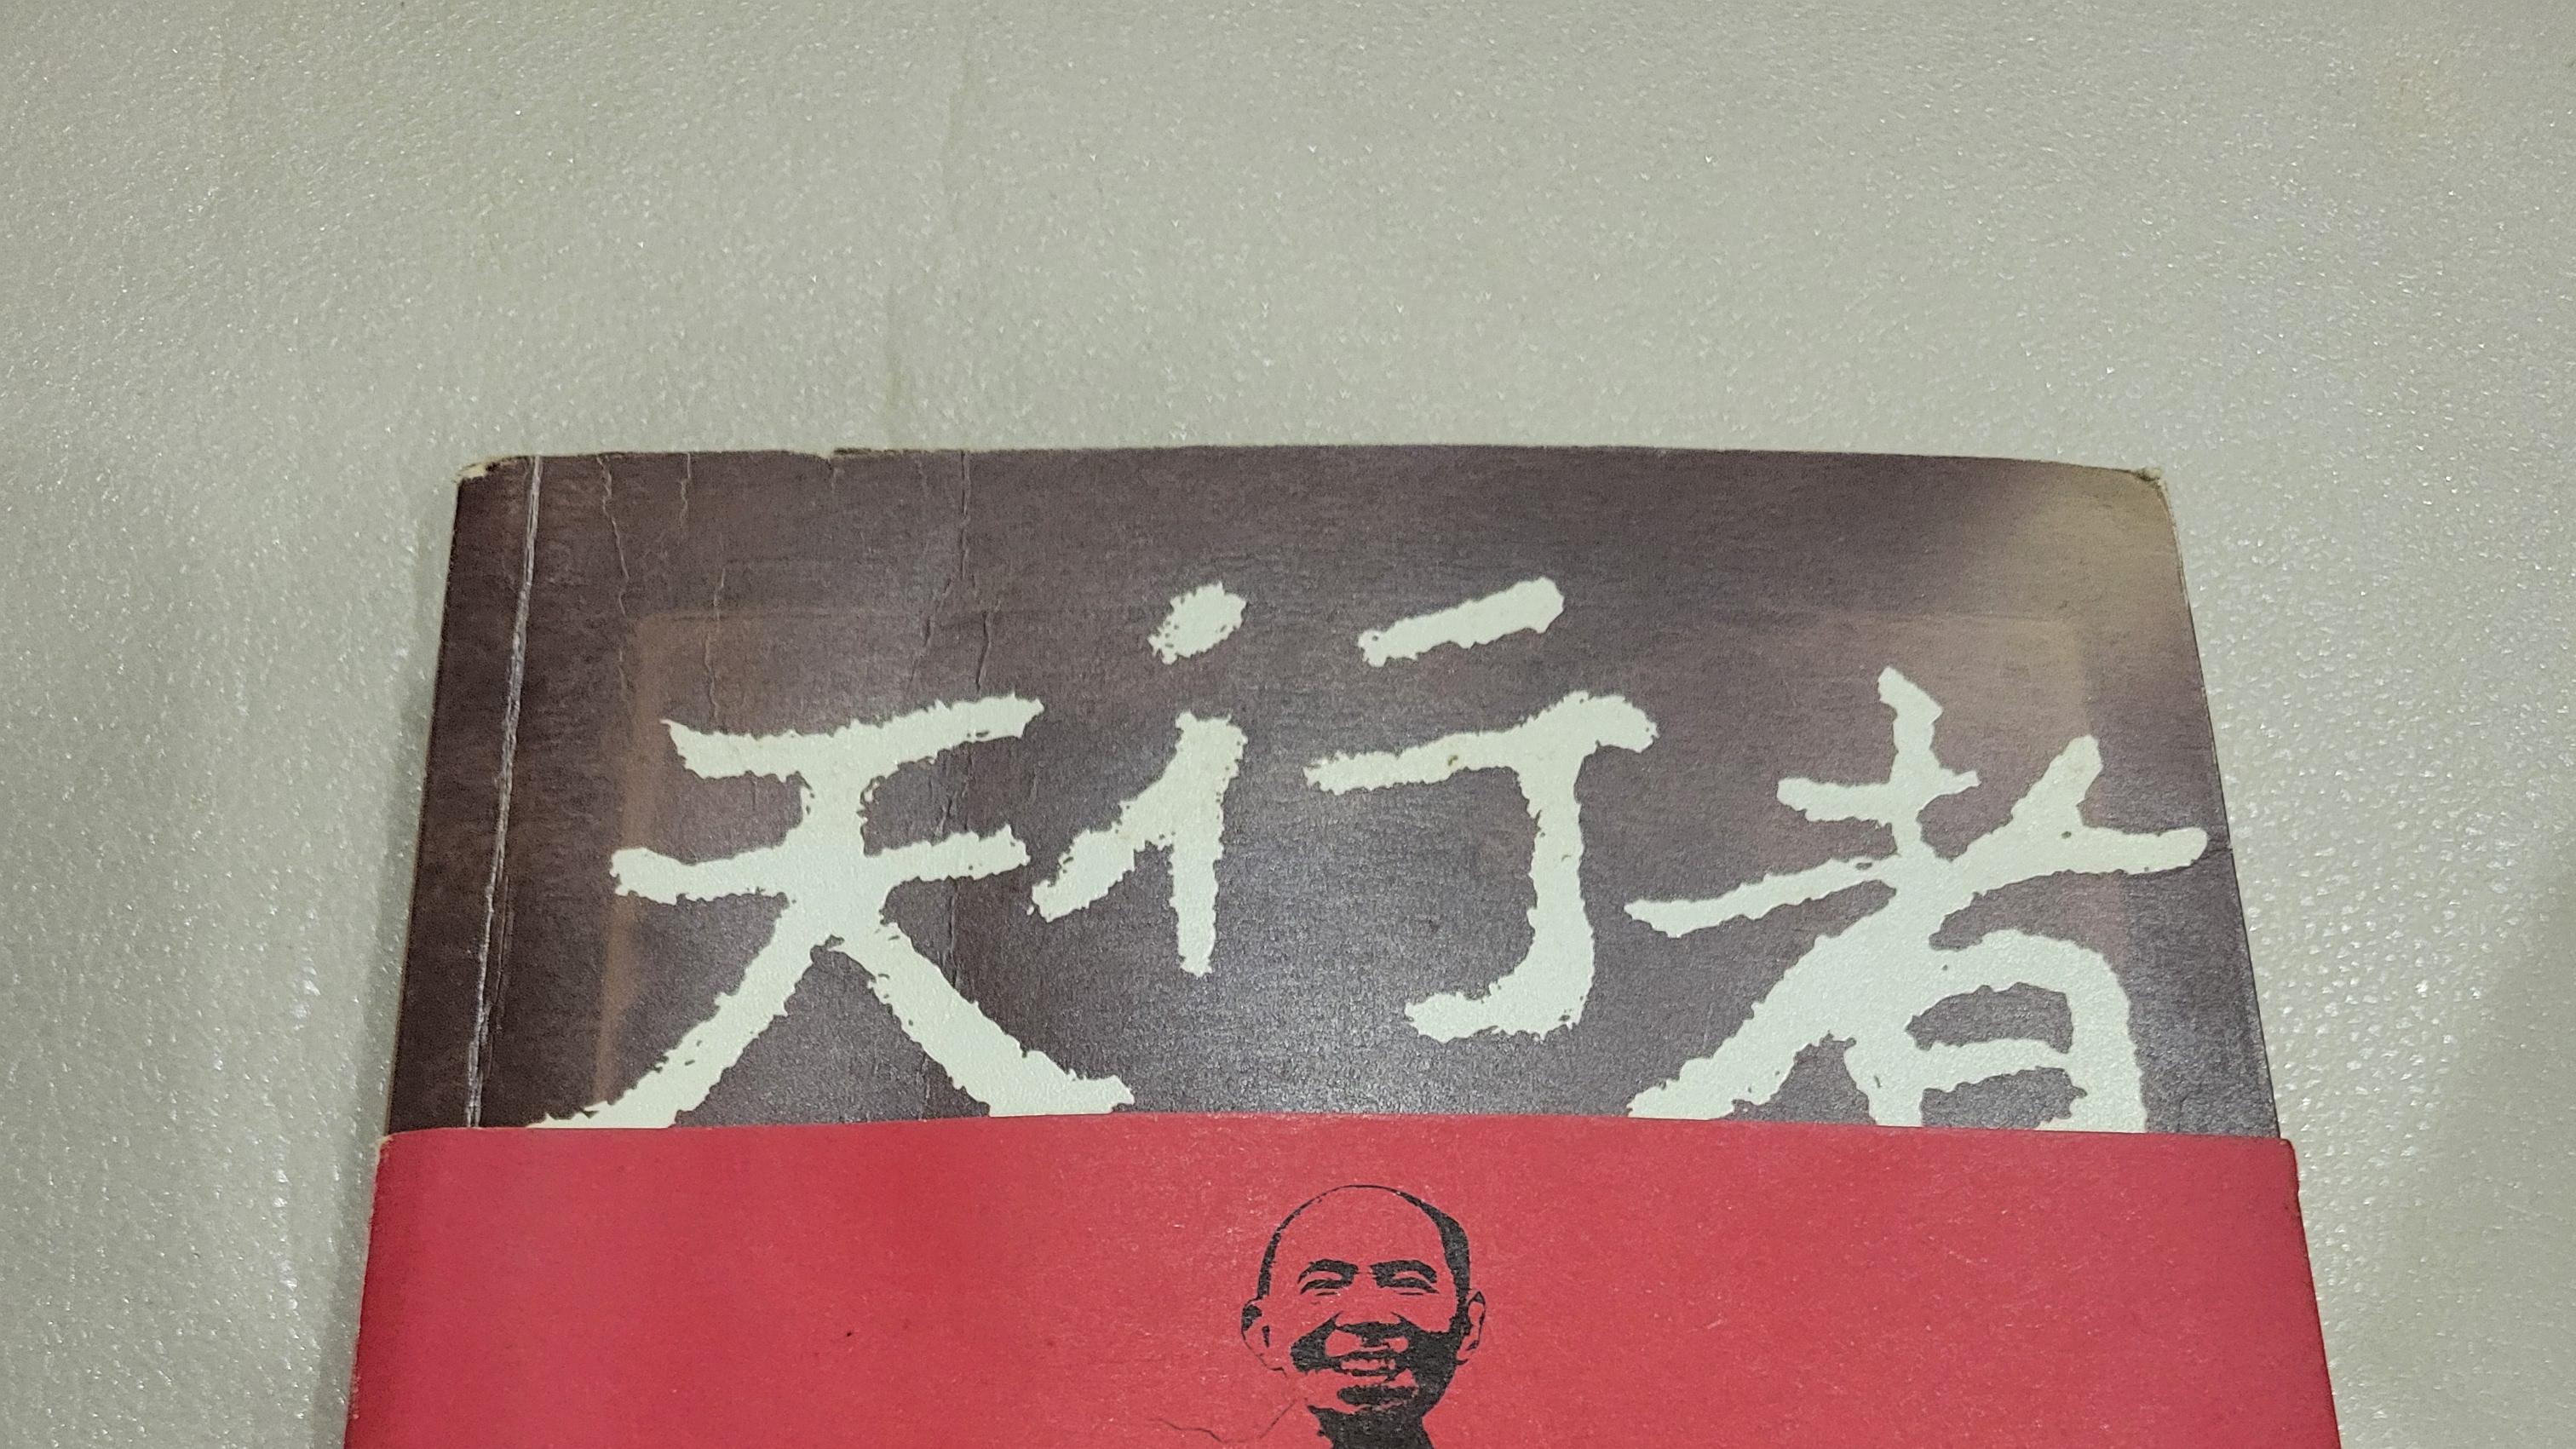 天行者